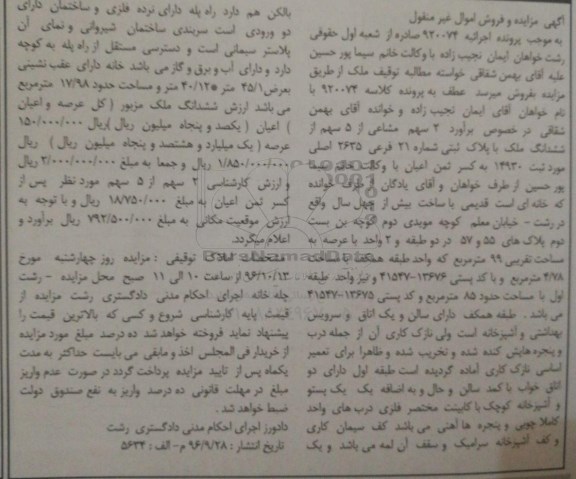 آگهی مزایده و فروش اموال غیر منقول
به موجب پرونده اجرائیه ۹۲۰۰۷۴ صادره از شعبه اول حقوقی
رشت خواهان ایمان نجیب زاده با وکالت خانم سیما پور حسین
علیه آقای بهمن شقاقی خواسته مطالبه توقیف ملک از طریق
مزایده بفروش میرسد عطف به پرونده کلاسه ۹۲۰۰۷۴ با
نام خواهان آقای ایمان نجیب زاده و خوانده آقای بهمن
شقاقی در خصوص برآورد ۲ سهم مشاعی از ۵ سهم از
ششدانگ ملک با پلاک ثبتی شماره ۲۱ فرعی ۲۶۳۵ اصلی
مورد ثبت ۱۴۹۳۰ به کسر ثمن اعیان با وکالت خانم سیما
پور حسین از طرف خواهان و آقای یادگان از طرف خوانده
که خانه ای است قدیمی با ساخت بیش از چهل سال واقع
در رشت - خیابان معلم کوچه مویدی دوم کوچه بن بست
دوم پلاک های ۵۵ و ۵۷ در دو طبقه و ۲ واحد با عرصه به
مساحت تقریبی ۹۹ مترمربع که واحد طبقه همکف به مساحت
۴/۷۸ مترمربع و با کد پستی ۱۳۶۷۶-۴۱۵۴۷ و نیز واحد طبقه
اول با مساحت حدود ۸۵ مترمربع و کد پستی ۱۳۶۷۵-۴۱۵۴۷
می باشد . طبقه همکف دارای سالن و یک اتاق و سرویس
بهداشتی و آشپزخانه است ولی نازک کاری آن از جمله درب
و پنجره هایش کنده شده و تخریب شده و ظاهرا برای تعمیر
اساسی نازک کاری آماده گردیده است طبقه اول دارای دو
اتاق خواب با کمد سالن و حال و به اضافه یک یک پستو
و آشپزخانه کوچک با کابینت مختصر فلزی درب های واحد
کاملا چوبی و پنجره ها آهنی می باشد کف سیمان کاری
و کف آشپزخانه سرامیک و سقف آن لمه می باشد و یک
بالکن هم دارد راه پله دارای نرده فلزی و ساختمان دارای
دو ورودی است سربندی ساختمان شیروانی و نمای آن
پلاستر سیمانی است و دسترسی مستقل از راه پله به کوچه
دارد و دارای آب و برق و گاز می باشد خانه دارای عقب نشینی
بعرض ۴۵/۱ متر *۴۰/۱۲ متر و مساحت حدود ۱۷/۹۸ مترمربع
می باشد ارزش ششدانگ ملک مزبور ( کل عرصه و اعیان
) اعیان ( یکصد و پنجاه میلیون ریال )ریال ۱۵۰/۰۰۰/۰۰۰
عرصه ( یک میلیارد و هشتصد و پنجاه میلیون ریال ) ریال
۱/۸۵۰/۰۰۰/۰۰۰ ریال و جمعا به مبلغ ۲/۰۰۰/۰۰۰/۰۰۰ ریال
و ارزش کارشناسی ۲ سهم از ۵ سهم مورد نظر پس از
کسر ثمن اعیان به مبلغ ۱۸/۷۵۰/۰۰۰ ریال و با توجه به
ارزش موقعیت مکانی به مبلغ ۷۹۲/۵۰۰/۰۰۰ ریال برآورد و
اعلام میگردد.
مشخصات املاک توقیفی : مزایده روز چهارشنبه مورخ
۹۶/۱۰/۱۳ از ساعت ۱۰ الی ۱۱ صبح محل مزایده - رشت
چله خانه اجرای احکام مدنی دادگستری رشت مزایده از
قیمت پایه کارشناسی شروع و کسی که بالاترین قیمت را
پیشنهاد نماید فروخته خواهد شد ده درصد مبلغ مورد مزایده
از خریدار فی المجلس اخذ و مابقی می بایست حداکثر به مدت
یکماه پس از تایید مزایده پرداخت گردد در صورت عدم واریز
مبلغ در مهلت قانونی ده درصد واریز به نفع صندوق دولت
ضبط خواهد شد .
دادورز اجرای احکام مدنی دادگستری رشت
تاریخ انتشار : ۹۶/۹/۲۸ م - الف : ۵۶۳۴